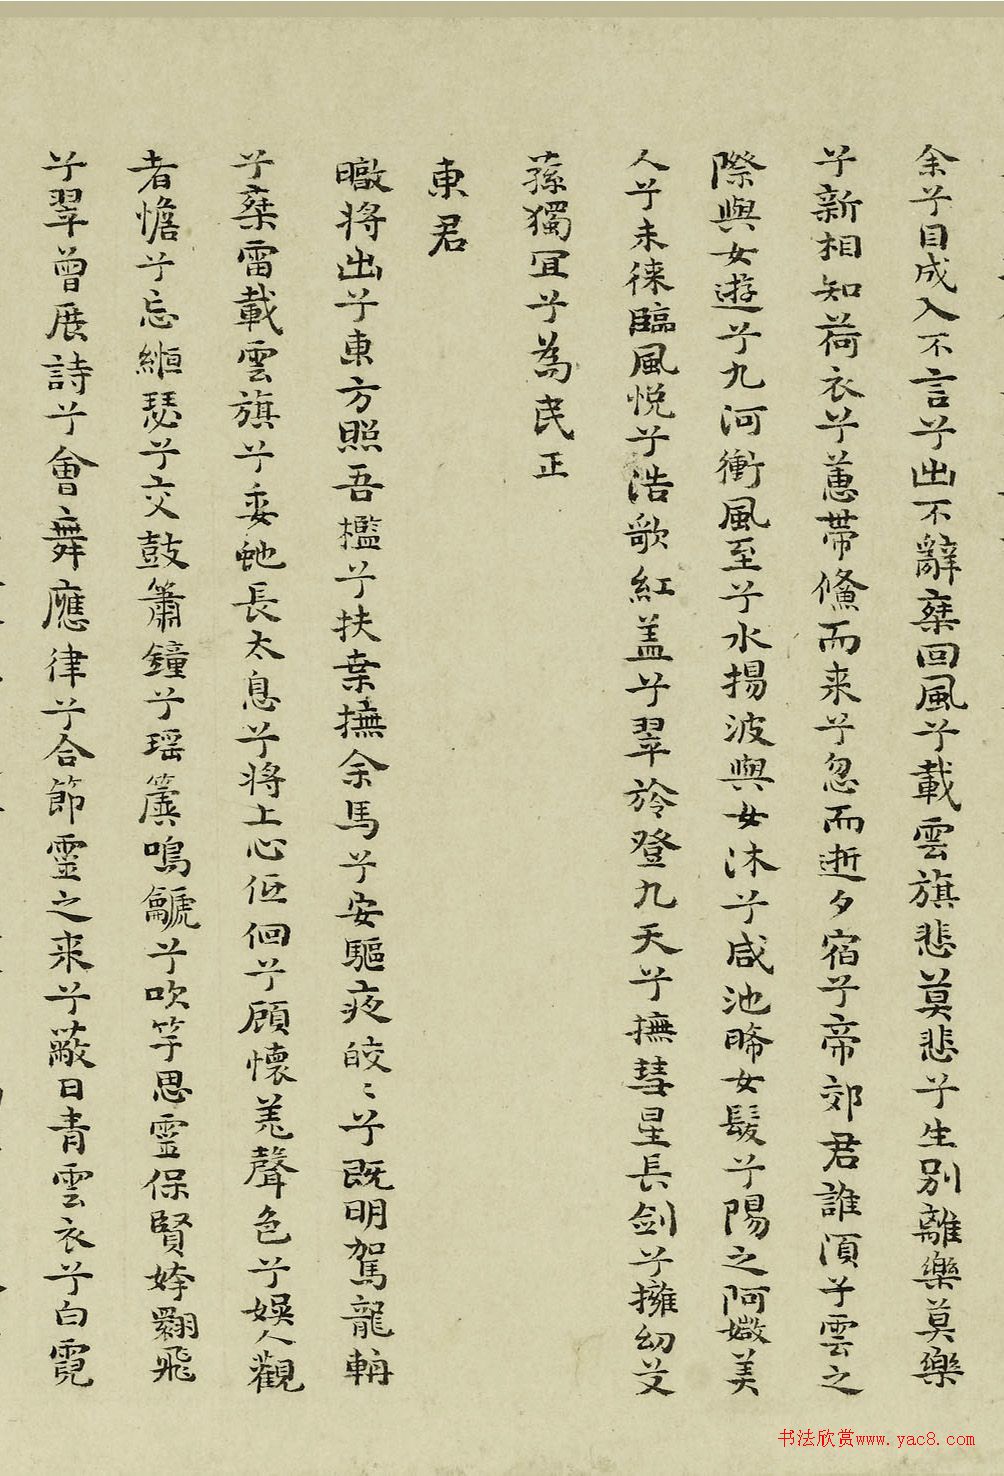 余兮目成入不言兮出不辭椉回風兮載雲旗悲莫悲兮生別離樂莫樂
兮新相知荷衣兮蕙帶儵而来兮忽而逝夕宿兮帝郊君誰須兮雲之
際與女遊兮九河衝風至兮水揚波與女沐兮咸池晞女髮兮陽之阿媺美
人兮未徠臨風怳兮浩歌紅盖兮翠旍登九天兮撫彗星長剑兮擁幼艾
蓀獨冝兮為民正
東君
暾将出兮東方照吾檻兮扶桒撫余馬兮安驅夜皎〻兮既明駕龍輈
兮椉雷載雲旗兮委虵長太息兮将上心低佪兮顧懷羌聲色兮娱人觀
者憺兮忘緪瑟兮交鼓簫鐘兮瑶簴鳴鷈兮吹竽思霊保賢姱翾飛
兮翠曾展詩兮會舞應律兮合節霊之来兮蔽日青雲衣兮白霓
书法欣赏www.yac8.com